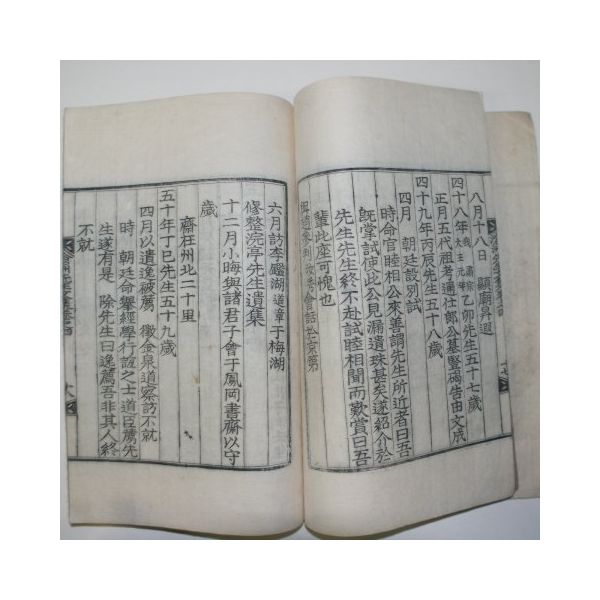 八月十八日 顯廟昇遐
四十八年 肅宗大王元年 乙卯先生五十七歲
正月五代祖考通仕郞公墓竪碣告由文成
四十九年丙辰先生五十八歲
四月 朝廷設別試
時命官睦相公來善謂先生所近者曰吾
旣掌試使此公見漏遺珠甚矣遂紹介於
先生先生終不赴試睦相聞而歎賞曰吾
輩此座可愧也
六月訪李鑑湖道章于梅湖
修整浣亭先生遺集
十二月小晦與諸君子會于鳳岡書齋以守
歲
齋在州北二十里
五十年丁巳先生五十九歲
四月以遺逸被薦 徵金泉道察訪不就
時 朝廷命擧經學行誼之士道臣薦先
生遂有是 除先生曰逸薦吾非其人終
不就